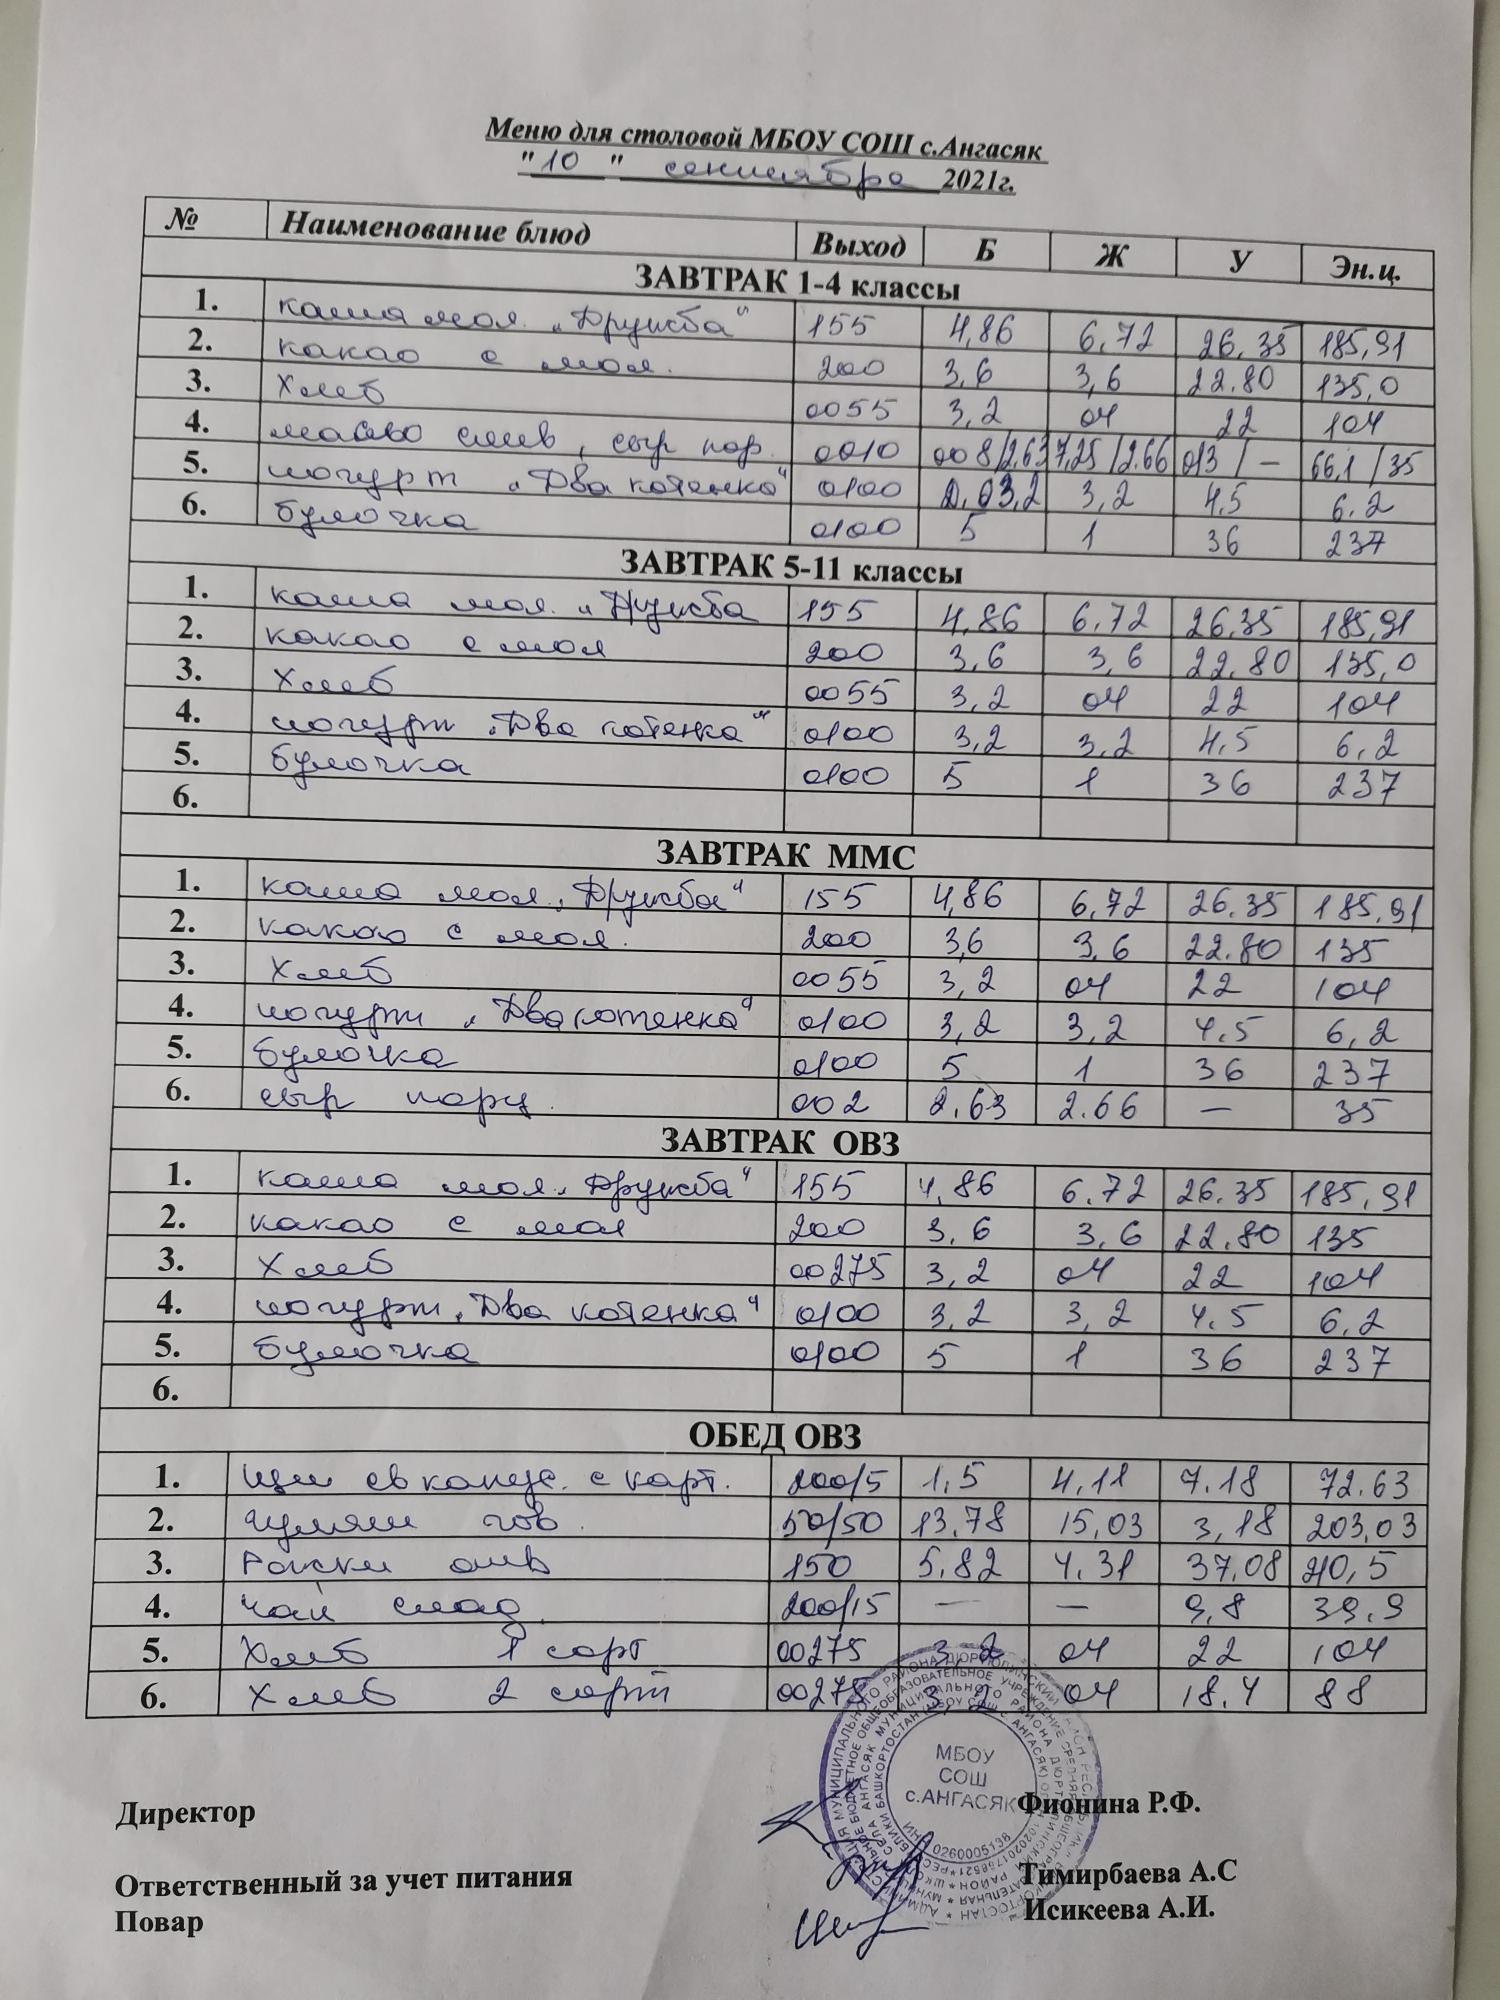 Меню для столовой МБОУ СОШ с.Ангасяк
"10" сентября 2021г.
№ Наименование блюд Выход Б Ж У Эн.ц.
ЗАВТРАК 1-4 классы
1. каша мол. „Дружба" 155 4,86 6,72 26,35 185,91
2. какао с мол. 200 3,6 3,6 22.80 135,0
3. Хлеб 0055 3,2 04 22 104
4. масло слив, сыр пор. 0010 008/2.63 7,25/2.66 013/– 66.1/35
5. йогурт „Два котенка" 0100 3,2 3,2 4,5 6.2
6. булочка 0100 5 1 36 237
ЗАВТРАК 5-11 классы
1. каша мол. „Дружба 155 4,86 6,72 26.35 185,91
2. какао с мол 200 3,6 3,6 22.80 135,0
3. Хлеб 0055 3,2 04 22 104
4. йогурт „Два котенка" 0100 3,2 3,2 4,5 6,2
5. булочка 0100 5 1 36 237
6.
ЗАВТРАК ММС
1. каша мол. „Дружба" 155 4,86 6,72 26.35 185,91
2. какао с мол. 200 3,6 3,6 22.80 135
3. Хлеб 0055 3,2 04 22 104
4. йогурт „Два котенка" 0100 3,2 3,2 4,5 6,2
5. булочка 0100 5 1 36 237
6. сыр порц. 002 2.63 2.66 – 35
ЗАВТРАК ОВЗ
1. каша мол. „Дружба" 155 4,86 6.72 26.35 185,91
2. какао с мол 200 3,6 3,6 22.80 135
3. Хлеб 00275 3,2 04 22 104
4. йогурт „Два котенка" 0100 3,2 3,2 4.5 6.2
5. булочка 0100 5 1 36 237
6.
ОБЕД ОВЗ
1. щи св капус. с карт. 200/5 1,5 4,11 7.18 72.63
2. гуляш гов. 50/50 13,78 15,03 3,18 203,03
3. Рожки отв 150 5,82 4.31 37,08 210,5
4. Чай слад. 200/15 – – 9,8 39,9
5. Хлеб 1 сорт 00275 3,2 04 22 104
6. Хлеб 2 сорт 00275 3,2 04 18.4 88
МБОУ
СОШ
с.АНГАСЯК
ИНН 0260005138
Директор Фионина Р.Ф.
Ответственный за учет питания Тимирбаева А.С
Повар Исикеева А.И.